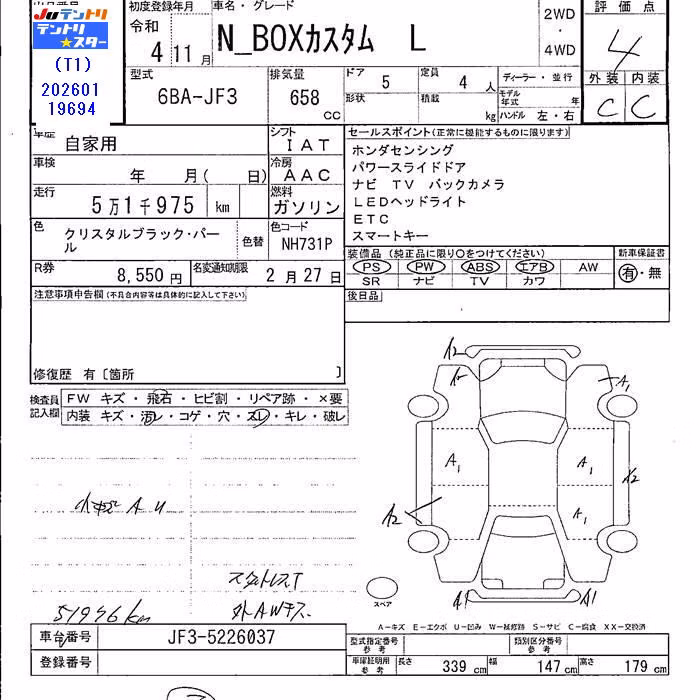 Juテントリ
テントリ★スター
(T1)
202601
19694
初度登録年月
令和
4 11月
車名・グレード
N_BOXカスタム L
2WD
・
4WD
評価点
4
外装 内装
C C
型式
6BA-JF3
排気量
658 cc
ドア 5
定員 4 人
形状
積載 kg
ディーラー・並行
モデル年式 年
ハンドル 左・右
車歴 自家用
シフト IAT
車検 年 月( 日)
冷房 AAC
走行 5万1千975 km
燃料 ガソリン
色 クリスタルブラック・パール
色替
色コード NH731P
R券 8,550円
名変通知期限 2月27日
セールスポイント(正常に機能するものに限ります)
ホンダセンシング
パワースライドドア
ナビ TV バックカメラ
LEDヘッドライト
ETC
スマートキー
装備品 (純正品に限り○をつけてください)
PS PW ABS エアB AW
SR ナビ TV カワ
新車保証書
有・無
後日品
注意事項申告欄(不具合内容等は具体的に記入して下さい)
修復歴 有〔箇所 〕
検査員記入欄
FW キズ・飛石・ヒビ割・リペア跡・×要
内装 キズ・汚レ・コゲ・穴・スレ・キレ・破レ
A2
A1
A1
A1
A2
A2
A1
A1
A1
小キズ A U
スタッドレスT
外AWキズ
51976km
スペア
A-キズ E-エクボ U-凹み W-補修跡 S-サビ C-腐食 XX-交換済
車台番号 JF3-5226037
登録番号
型式指定番号 参考
類別区分番号 参考
車庫証明用 参考
長さ 339cm 幅 147cm 高さ 179cm